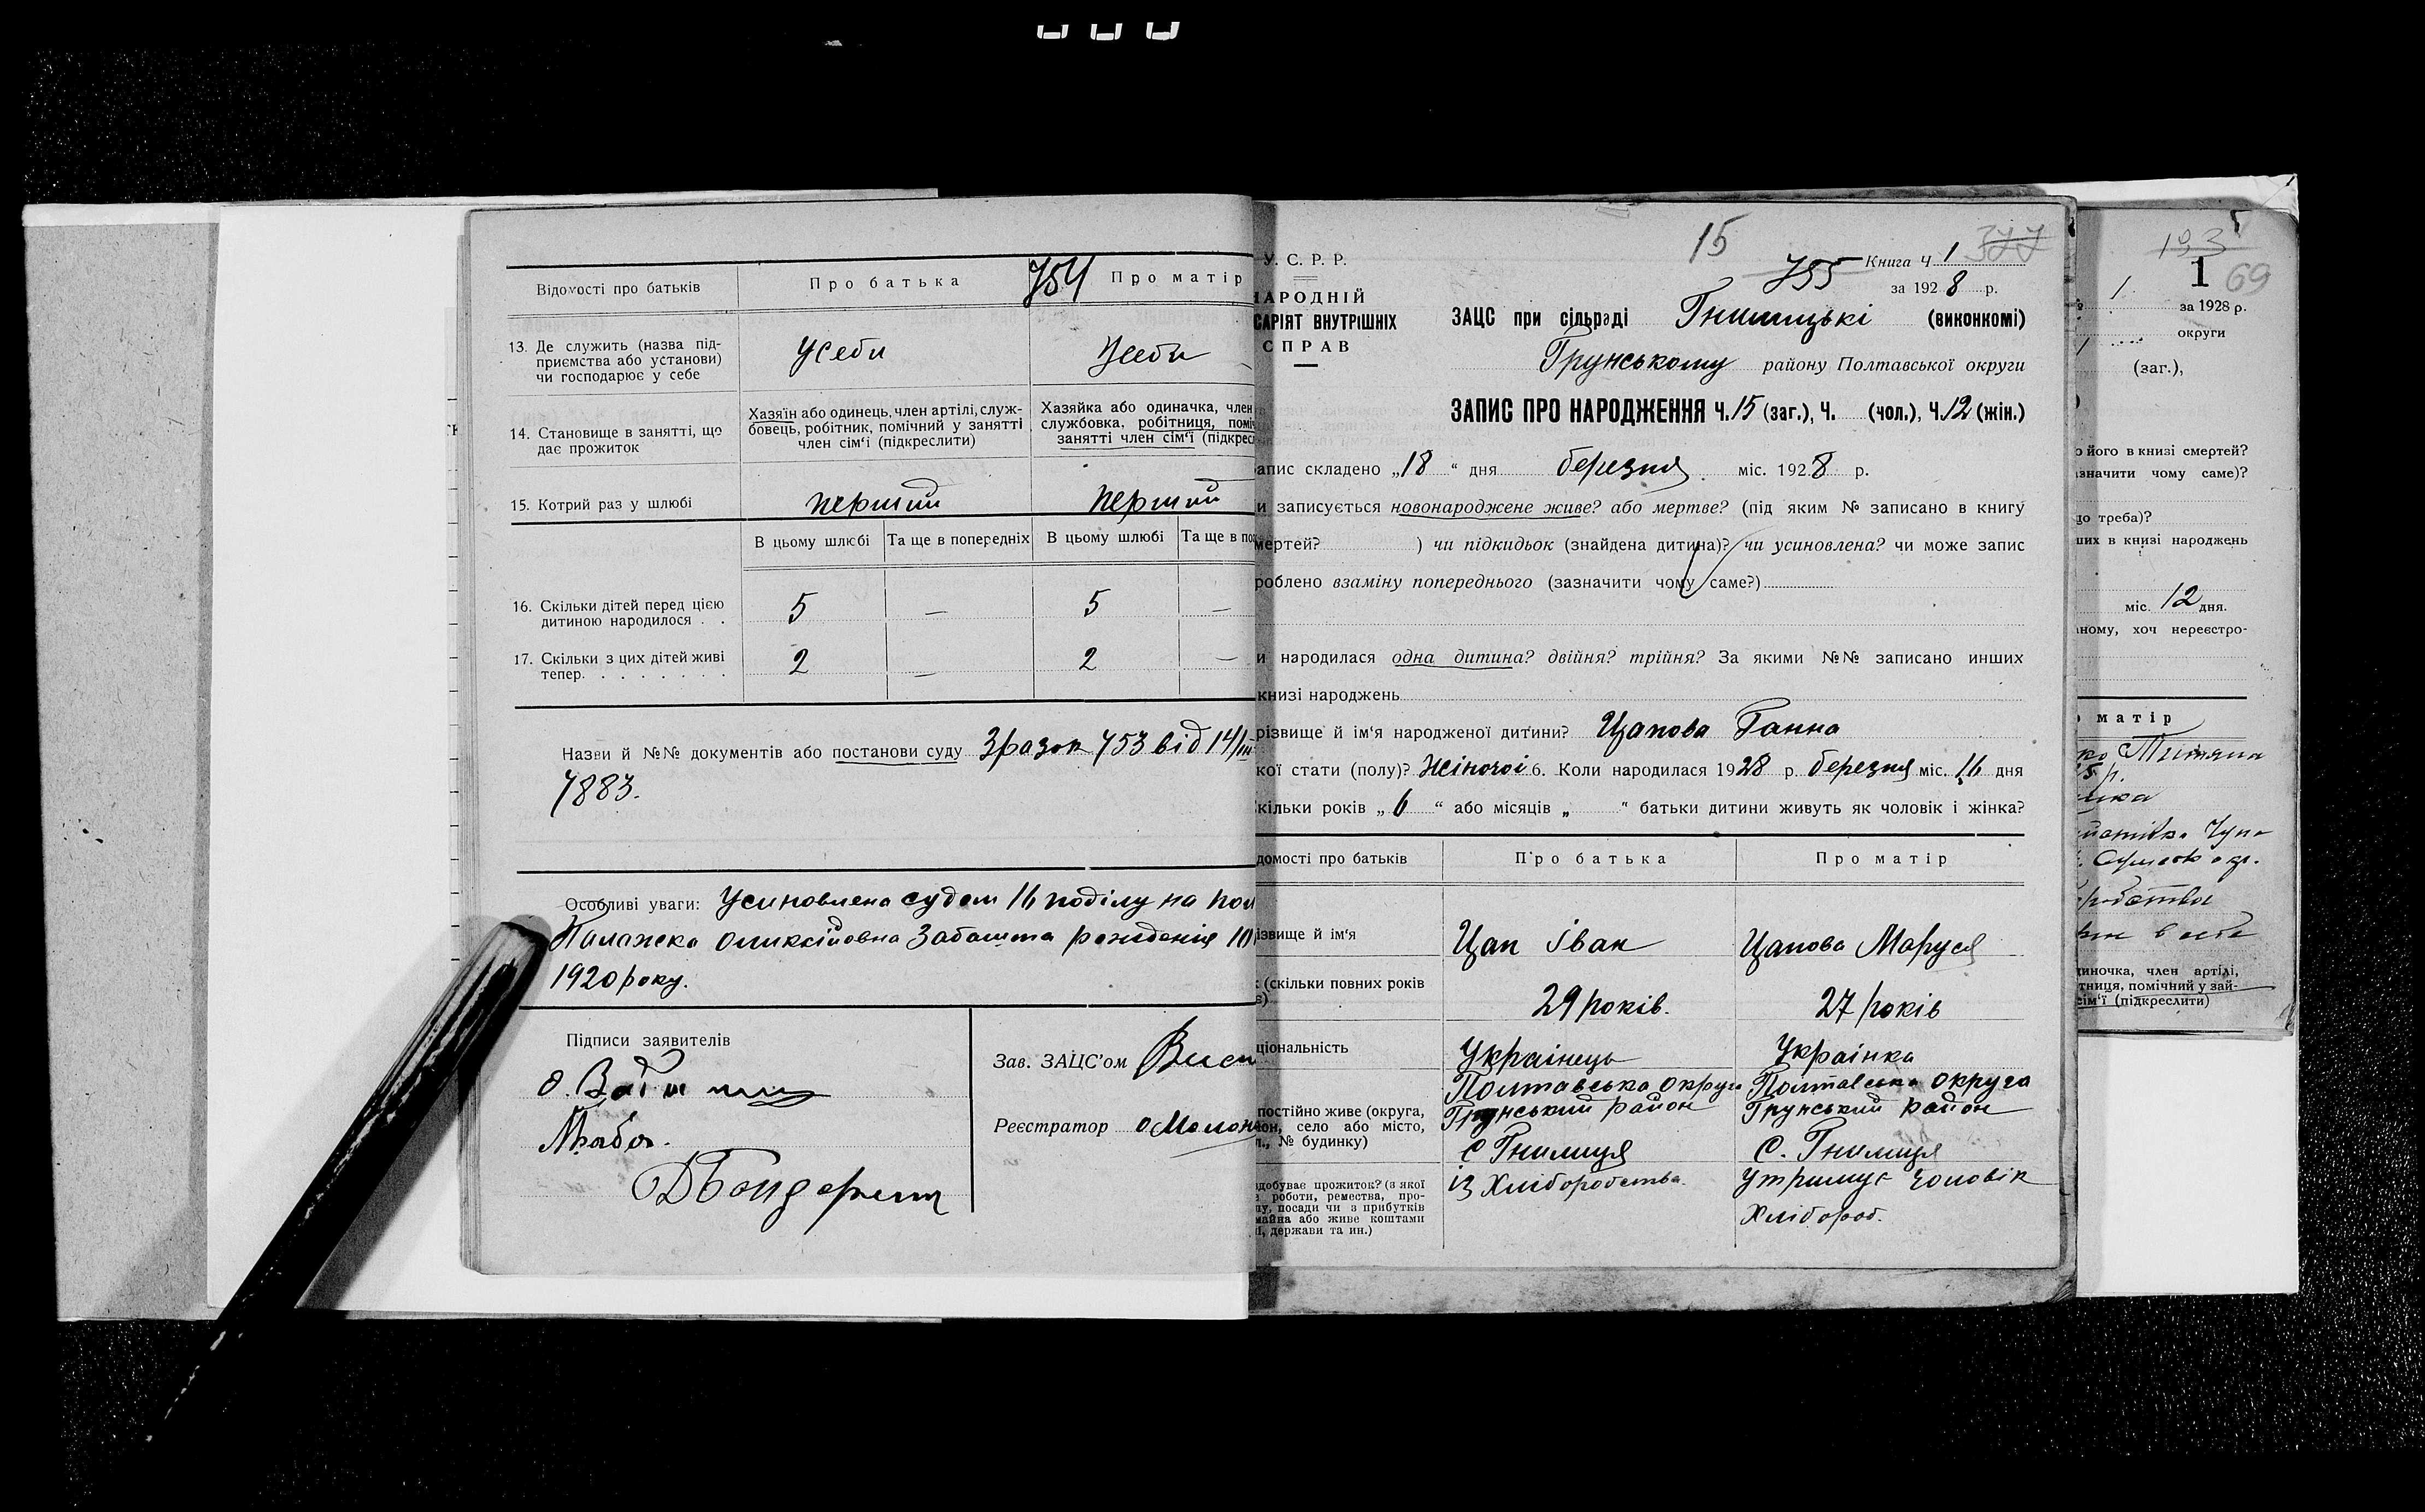 754
Відомості про батьків
Про батька
Про матір
13. Де служить (назва під-
приємства або установи)
чи господарює у себе
Усеби
Усеби
14. Становище в занятті, що
дає прожиток
Хазяїн або одинець, член артілі, служ-
бовець, робітник, помічний у занятті
член сім'ї (підкреслити)
Хазяйка або одиначка, член
службовка, робітниця, поміч
занятті член сім'ї (підкресл
15. Котрий раз у шлюбі
перший
перший
В цьому шлюбі
Та ще в попередніх
В цьому шлюбі
Та ще в по
16. Скільки дітей перед цією
дитиною народилося . .
5 — 5 —
17. Скільки з цих дітей живі
тепер. . . . . . . .
2 — 2 —
Назви й №№ документів або постанови суду Зразок 753 від 14/III
7883.
Особливі уваги: Усиновлена судом 16 поділу на пол
Палажка Забашта рождения 10
1920 року.
Підписи заявителів
Зав. ЗАЦС'ом
Реєстратор
15
377
755
Книга Ч 1
за 1928 р.
У. С. Р. Р.
НАРОДНІЙ
САРІЯТ ВНУТРІШНІХ
СПРАВ
ЗАЦС при сільраді Гнилицькі (виконкомі)
Грунському району Полтавської округи
ЗАПИС ПРО НАРОДЖЕННЯ Ч. 15 (заг.), Ч. (чол.), Ч. 12 (жін.)
апис складено „18“ дня березня міс. 1928 р.
и записується новонароджене живе? або мертве? (під яким № записано в книгу
мертей? ) чи підкидьок (знайдена дитина)? чи усиновлена? чи може запис
роблено взаміну попереднього (зазначити чому саме?)
и народилася одна дитина? двійня? трійня? За якими №№ записано инших
книзі народжень
різвище й ім'я народженої дитини? Цапова Ганна
кої стати (полу)? Жіночої 6. Коли народилася 1928 р. березня міс. 16 дня
кільки років „6“ або місяців „ “ батьки дитини живуть як чоловік і жінка?
домості про батьків
Про батька
Про матір
ізвище й ім'я
Цап Іван
Цапова Маруся
(скільки повних років
29 років.
27 років
ціональність
Українець
Українка
постійно живе (округа,
он, село або місто,
., № будинку)
Полтавська округа
Грунський район
с Гнилиця
Полтавська округа
Грунський район
С. Гнилиця
здобуває прожиток? (з якої
роботи, ремества, про-
у, посади чи з прибутків
майна або живе коштами
ї, держави та ин.)
із Хліборобства.
Утримує Чоловік
Хлібороб.
193
1
69
1
за 1928 р.
округи
(заг.),
о його в книзі смертей?
значити чому саме)?
що треба)?
ших в книзі народжень
міс. 12 дня.
ному, хоч нереєстро-
матір
диночка, член артілі,
тниця, помічний у зай-
сім'ї (підкреслити)